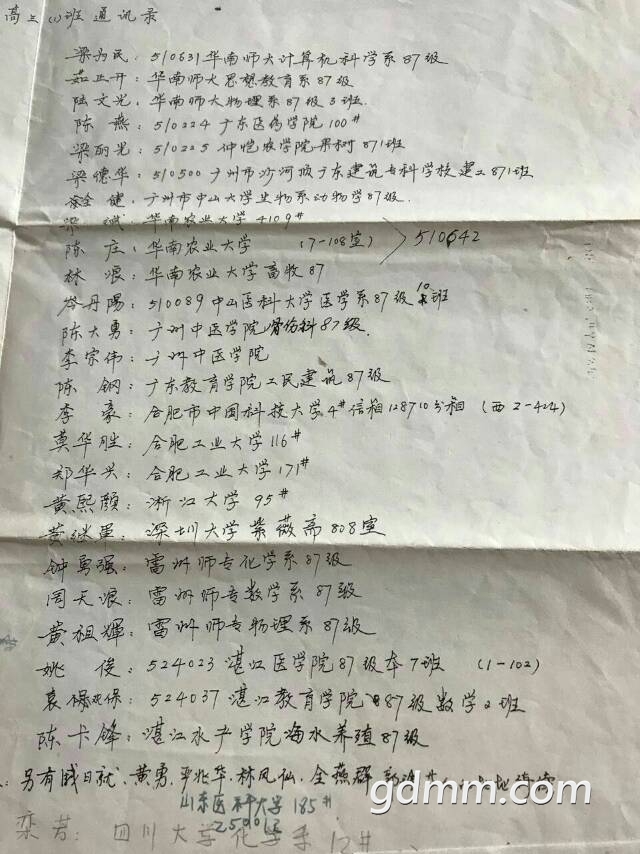 高三(1)班通讯录
梁为民：510631华南师大计算机科学系87级
茹业开：华南师大思想教育系87级
陆文光：华南师大物理系87级3班.
陈燕：510224广东医药学院100#
梁丽光：510225仲恺农学院果树871班
梁德华：510500广州市沙河顶广东建筑专科学校建工871班
健：广州市中山大学生物系动物学87级.
梁斌：华南农业大学4109#
陈庄：华南农业大学(7-108室) 510642
林浪：华南农业大学畜牧87
岑丹陽：510089中山医科大学医学系87级10班
陈大勇：广州中医学院骨伤科87级.
李宗伟：广州中医学院
陈钢：广东教育学院工民建筑87级
李豪：合肥市中国科技大学4#信箱128710分箱(西2-424)
莫华胜：合肥工业大学116#
郑华兴：合肥工业大学171#
黄熙颜：浙江大学95#
黄继星：深圳大学紫薇斋808室
钟勇强：雷州师专化学系87级
周天浪：雷州师专数学系87级
黄祖輝：雷州师专物理系87级
姚俊：524023湛江医学院87级本7班(1-102)
袁保：524037湛江教育学院87级数学2班
陈卡锋：湛江水产学院海水养殖87级
另有钱日就、黄勇、严兆华、林凤仙、全燕群
山东医科大学185#
250012
栾芳：四川大学化学系12#
gdmm.com